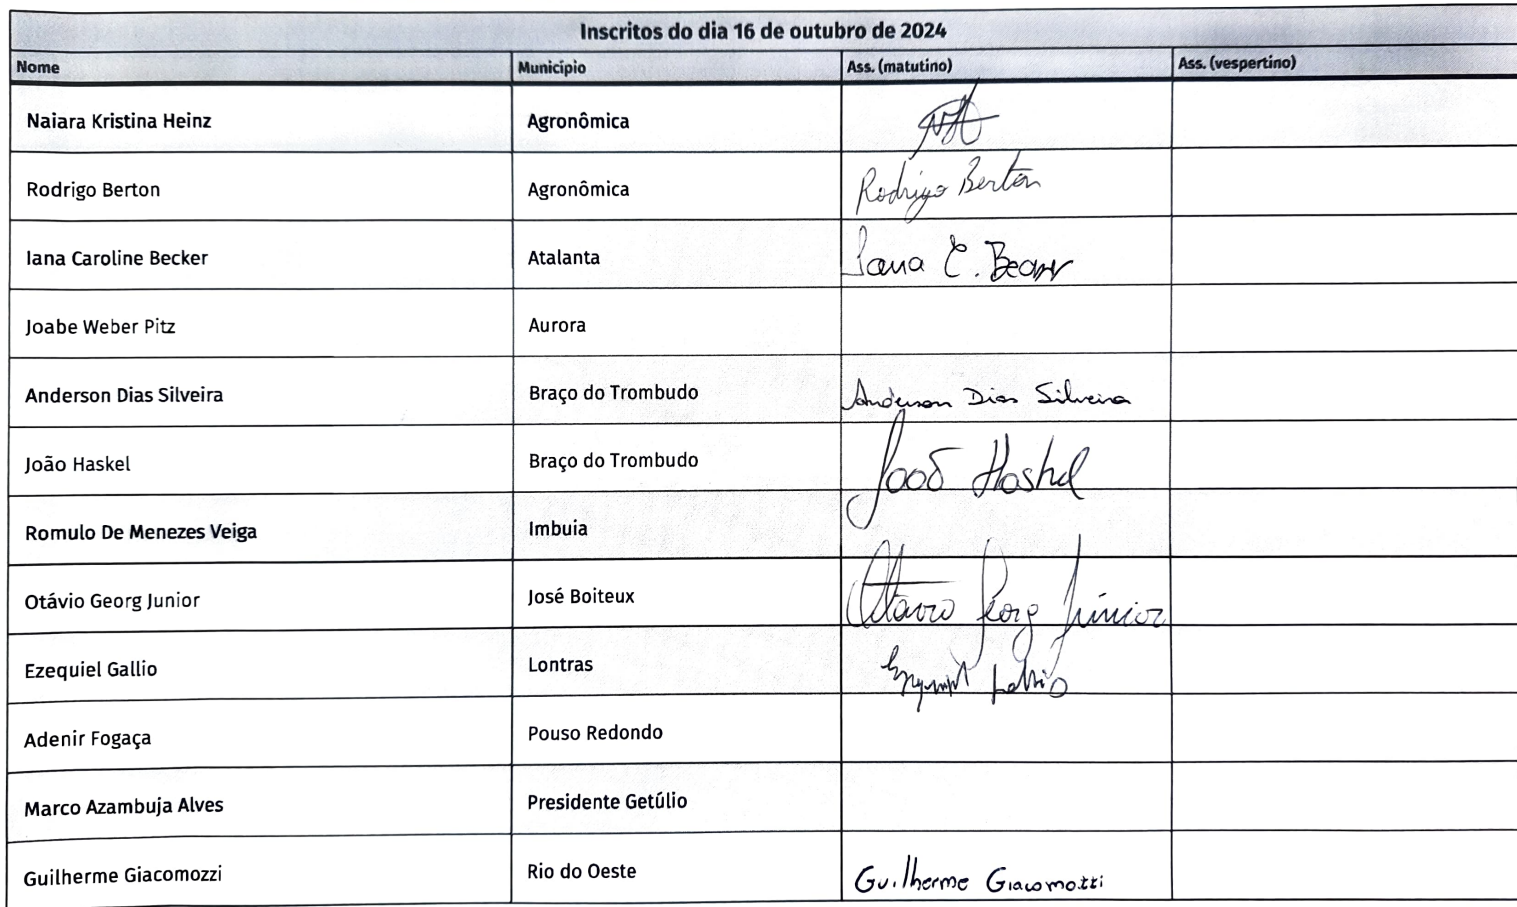 Inscritos do dia 16 de outubro de 2024
Nome Município Ass. (matutino) Ass. (vespertino)
Naiara Kristina Heinz Agronômica
Rodrigo Berton Agronômica Rodrigo Berton
Iana Caroline Becker Atalanta Iana C. Becker
Joabe Weber Pitz Aurora
Anderson Dias Silveira Braço do Trombudo Anderson Dias Silveira
João Haskel Braço do Trombudo João Haskel
Romulo De Menezes Veiga Imbuia
Otávio Georg Junior José Boiteux Otavio Georg Júnior
Ezequiel Gallio Lontras
Adenir Fogaça Pouso Redondo
Marco Azambuja Alves Presidente Getúlio
Guilherme Giacomozzi Rio do Oeste Guilherme Giacomozzi